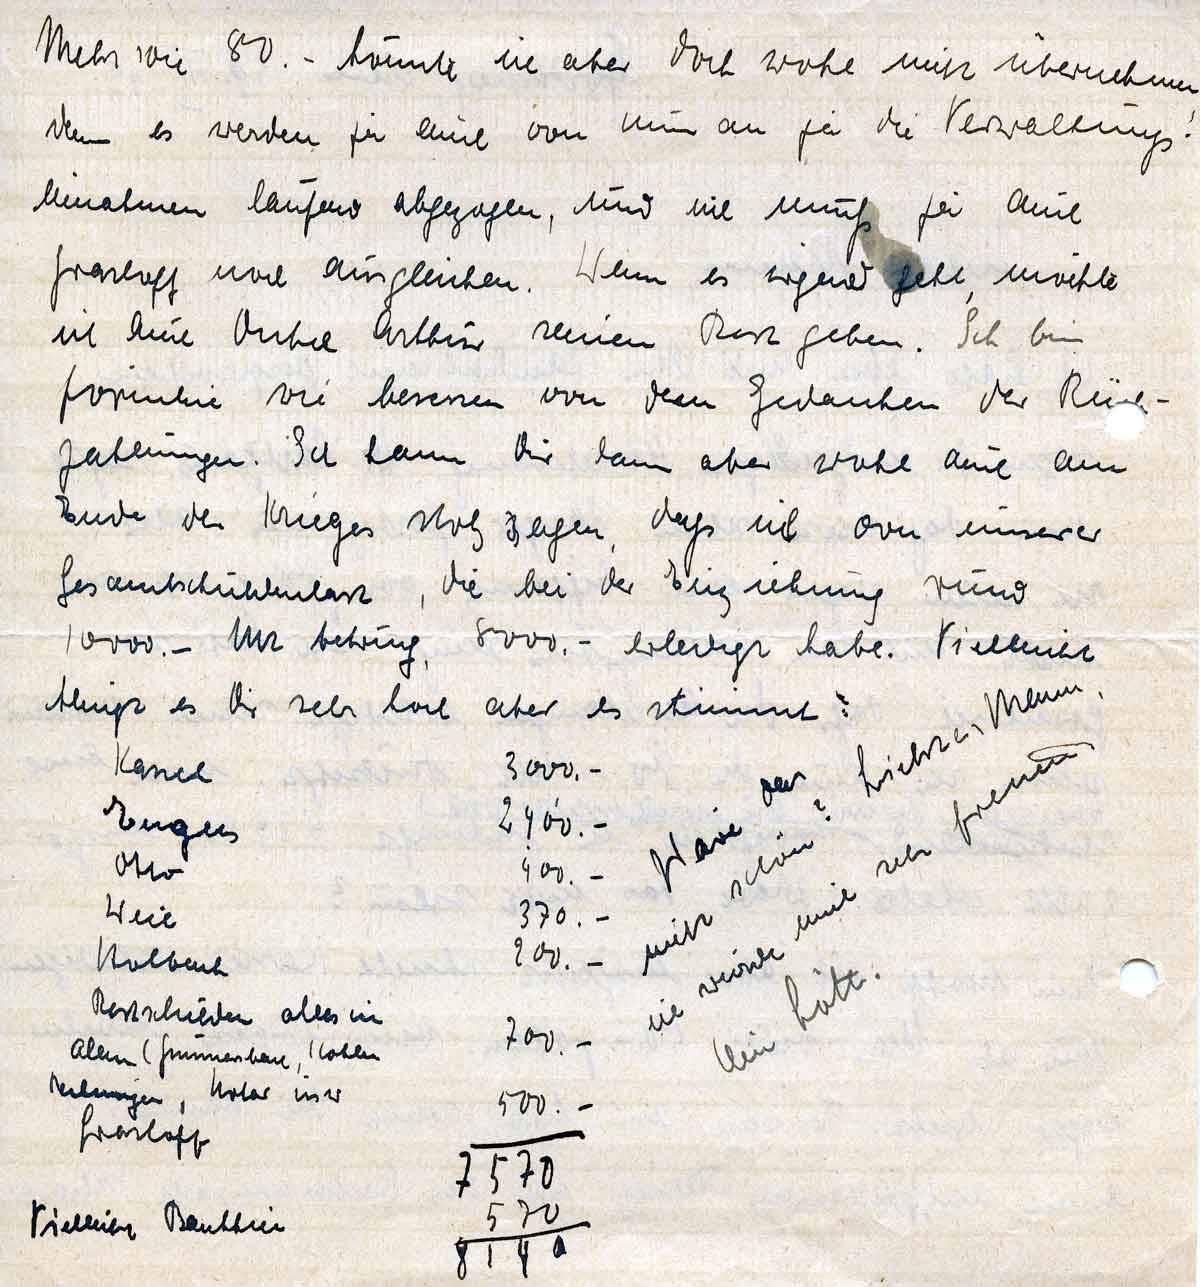 Mehr wie 80.- könnte sie aber doch wohl nicht übernehmen
denn es werden ja auch von nun an ja die Verwaltungs!
einnahmen laufend abgezogen, und ich muß ja auch
Grasloff noch ausgleichen. Wenn es irgend geht, möchte
ich auch Onkel Arthur seinen Rest geben. Ich bin
förmlich wie besessen von dem Gedanken der Rück-
zahlungen. Ich kann Dir dann aber wohl auch am
Ende des Krieges stolz sagen, dass ich von unserer
Gesamtschuldenlast, die bei der Einziehung rund
10000.- Mk betrug, 8000.- erledigt habe. Vielleicht
klingt es Dir sehr hoch aber es stimmt:
Kassel 3000.-
Engels 2400.-
Otto 400.-
Weil 370.-
Kolbach 200.-
Restschulden alles in
allem (Grünersbach, Kohlen 700.-
Rechnungen, Notar usw
Grasloff 500.-
7570
Vielleicht Bauthier 570
8140
Wäre das
nicht schön? Liebster Mann,
ich würde mich sehr freuen
Dein Lott.